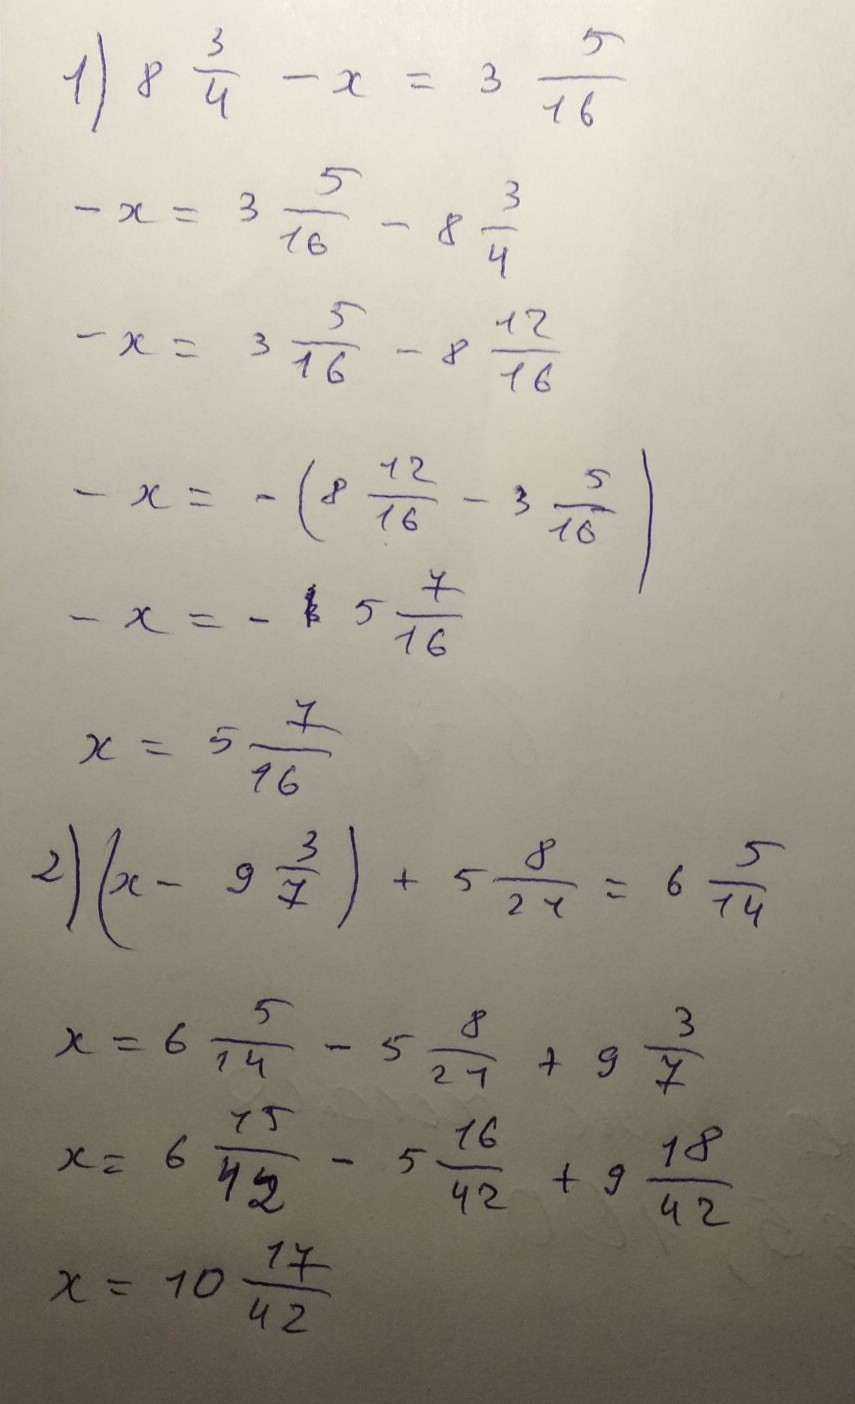 1) 8 3/4 - x = 3 5/16
- x = 3 5/16 - 8 3/4
- x = 3 5/16 - 8 12/16
- x = - (8 12/16 - 3 5/16)
- x = - 5 7/16
x = 5 7/16
2) (x - 9 3/7) + 5 8/21 = 6 5/14
x = 6 5/14 - 5 8/21 + 9 3/7
x = 6 15/42 - 5 16/42 + 9 18/42
x = 10 17/42